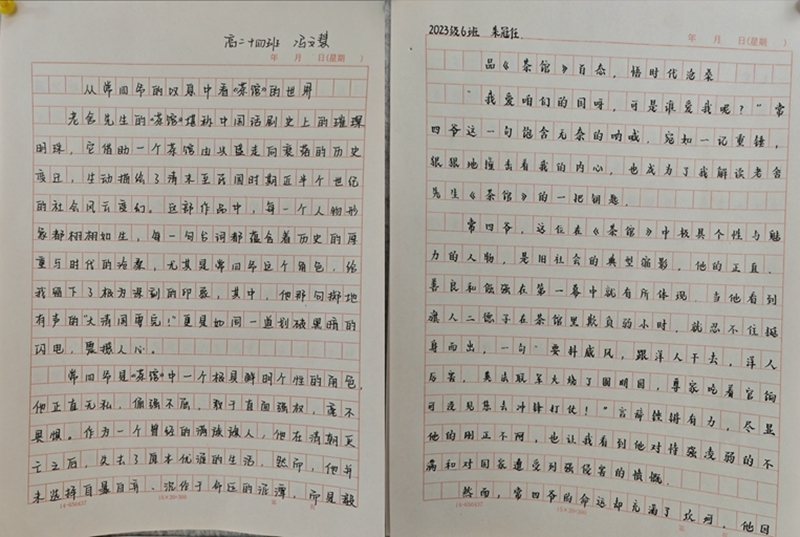 高二十四班 冯文慧
年 月 日(星期 )
从常四爷的叹息中看《茶馆》的世界
老舍先生的《茶馆》堪称中国话剧史上的璀璨
明珠，它借助一个茶馆由兴盛走向衰落的历史
变迁，生动描绘了清末至民国时期近半个世纪
的社会风云变幻。在部作品中，每一个人物形
象都栩栩如生，每一句台词都蕴含着历史的厚
重与时代的沧桑，尤其是常四爷这个角色，给
我留下了极为深刻的印象，其中，他那句掷地
有声的“大清国要完！”更是如同一道划破黑暗的
闪电，震撼人心。
常四爷是《茶馆》中一个极具鲜明个性的角色，
他正直无私，倔强不屈，敢于直面强权，毫不
畏惧。作为一个曾经的满族旗人，他在清朝灭
亡之后，失去了原本优渥的生活，然而，他并
未选择自暴自弃、沉沦于命运的泥潭，而是毅
14-656437
15×20=300
第 页
2023级6班 朱冠任
年 月 日(星期 )
品《茶馆》百态，悟时代沧桑
“我爱咱们的国呀，可是谁爱我呢？”常
四爷这一句饱含无奈的呐喊，宛如一记重锤，
狠狠地撞击着我的内心，也成为了我解读老舍
先生《茶馆》的一把钥匙。
常四爷，这位在《茶馆》中极具个性与魅
力的人物，是旧社会的典型缩影，他的正直、
善良和倔强在第一幕中就有所体现。当他看到
旗人二德子在茶馆里欺负弱小时，就忍不住挺
身而出，一句“要抖威风，跟洋人干去，洋人
厉害，英法联军大烧了圆明园，尊家吃着官饷
可没见您去冲锋打仗！”言辞铿锵有力，尽显
他的刚正不阿，也让我看到他对恃强凌弱的不
满和对国家遭受列强侵害的愤慨。
然而，常四爷的命运却充满了坎坷，他因
14-656437
15×20=300
第 页